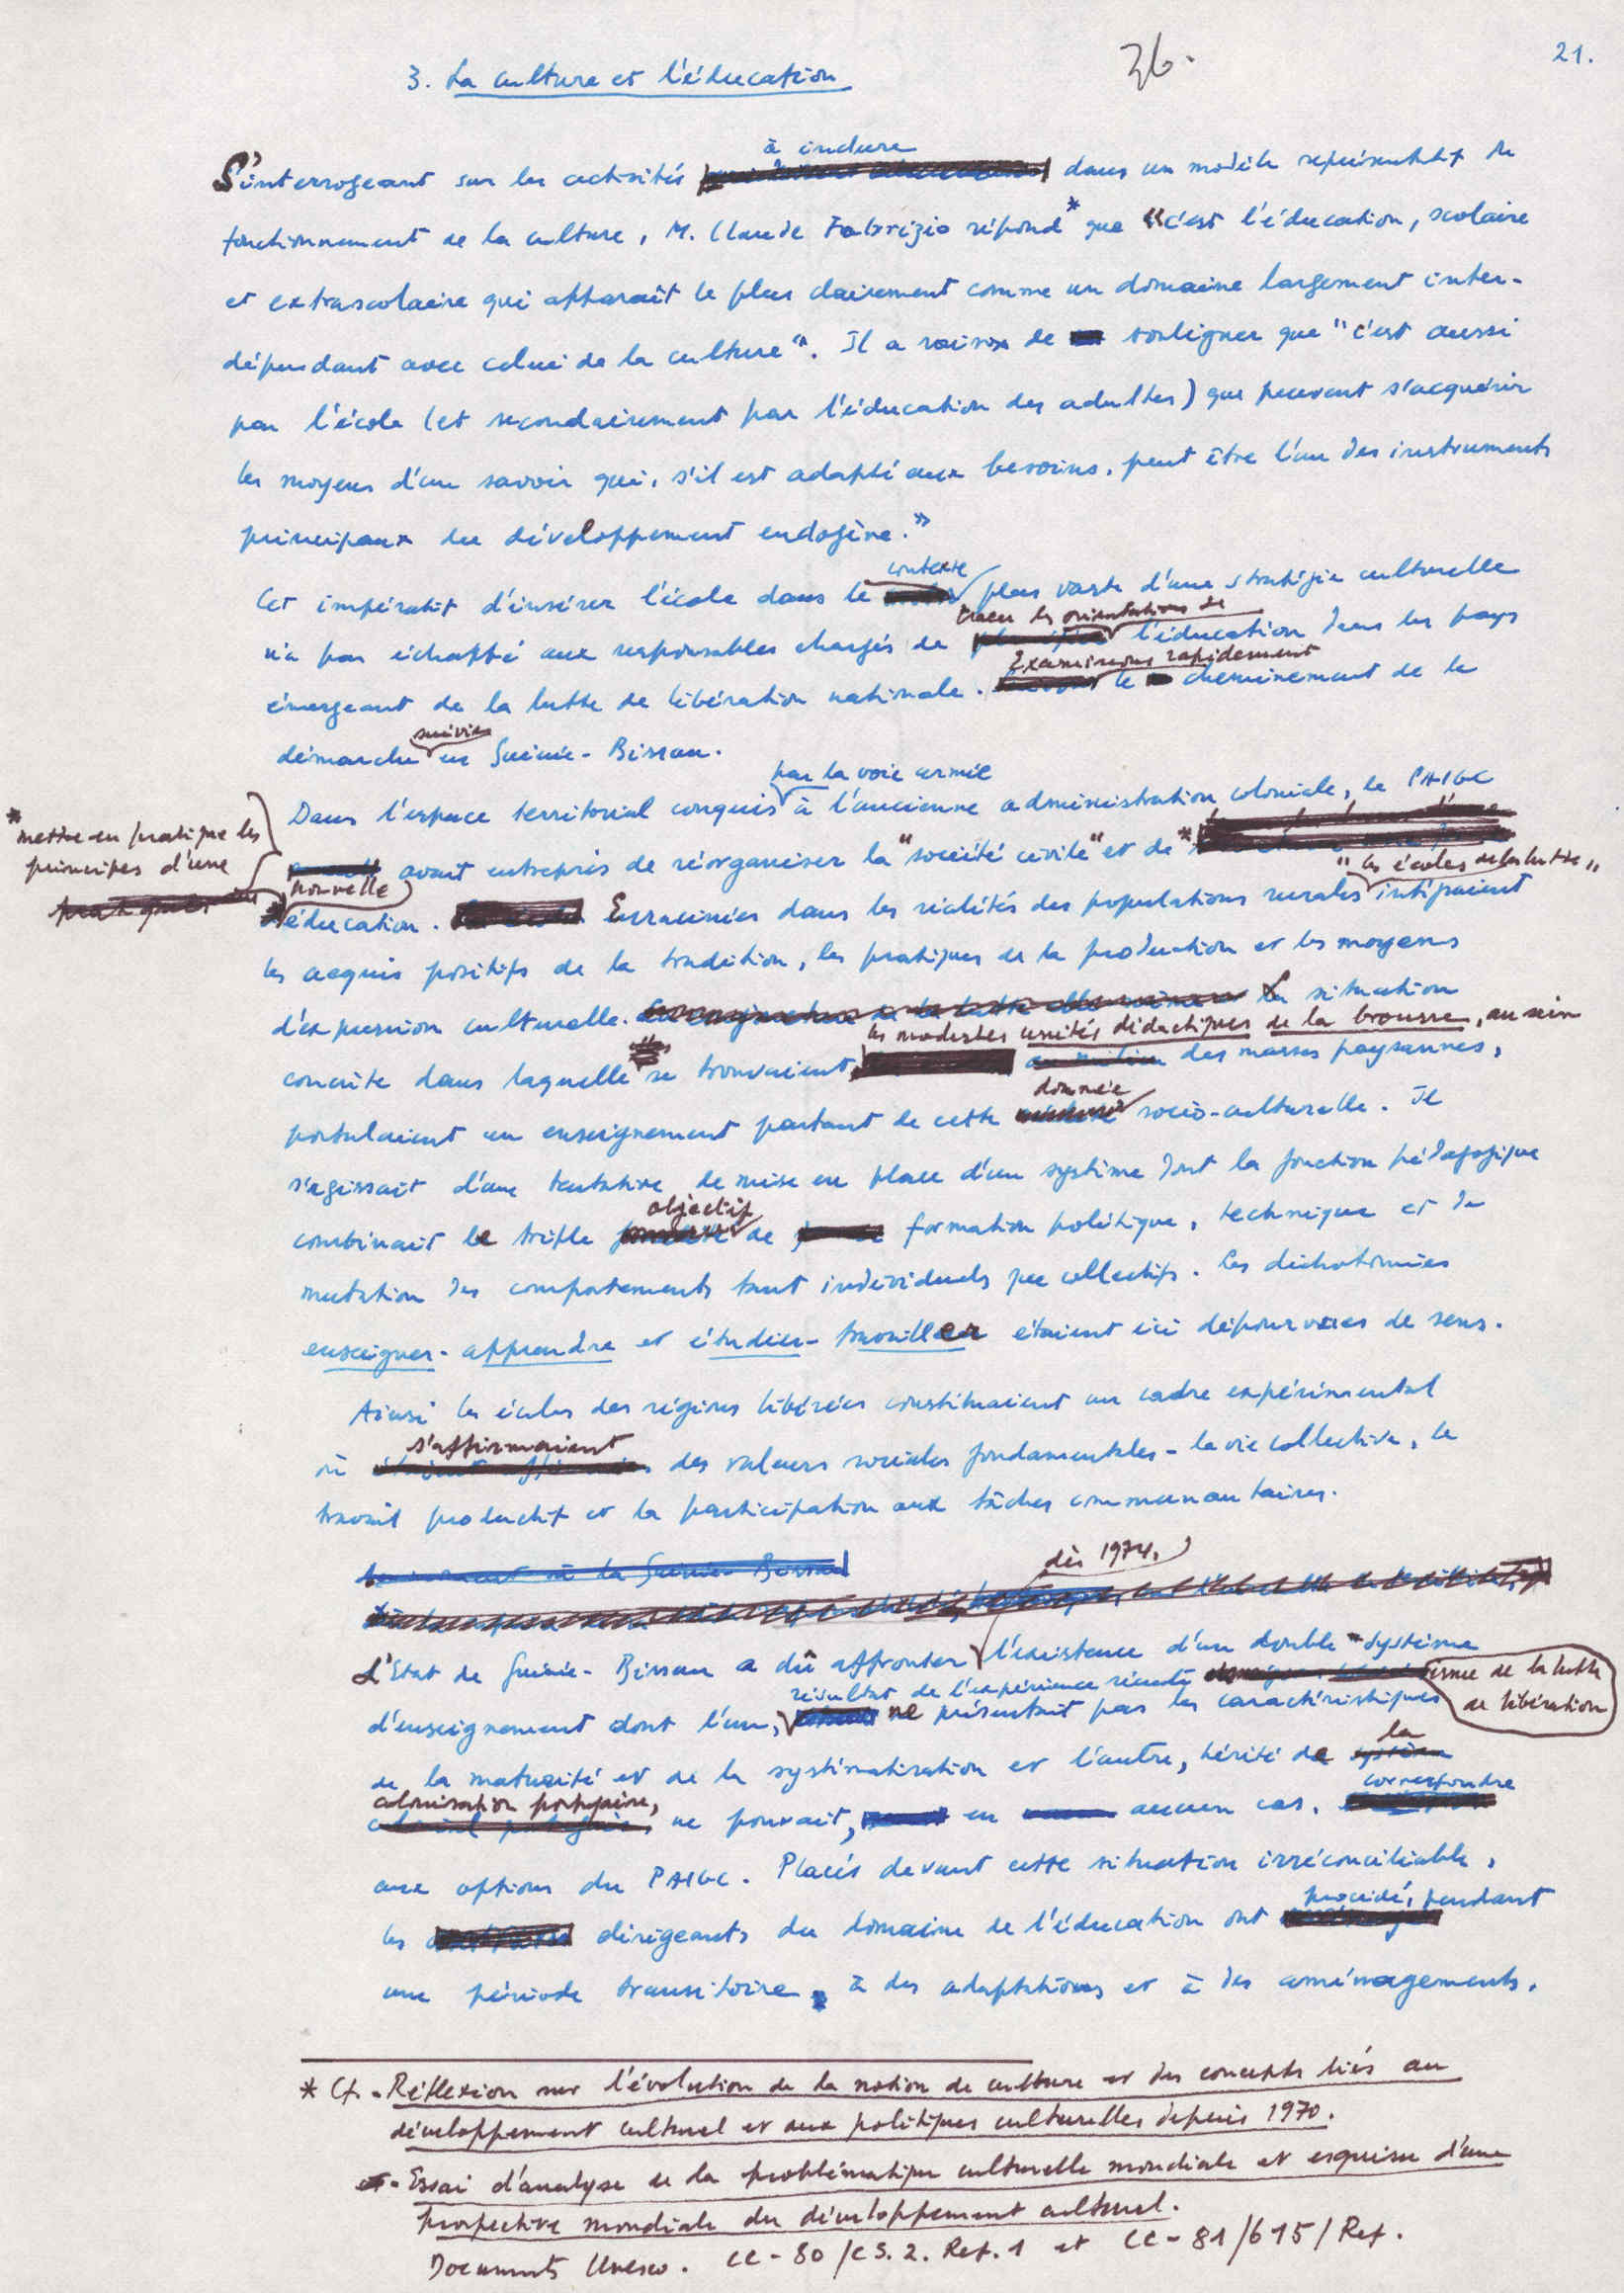 36.
21.
3. La culture et l'éducation
à inclure
S'interrogeant sur les activités dans un modèle représentatif du
fonctionnement de la culture, M. Claude Fabrizio répond* que "c'est l'éducation, scolaire
et extrascolaire qui apparaît le plus clairement comme un domaine largement inter-
dépendant avec celui de la culture". Il a raison de souligner que "c'est aussi
par l'école (et secondairement par l'éducation des adultes) que peuvent s'acquérir
les moyens d'un savoir qui, s'il est adapté aux besoins, peut être l'un des instruments
principaux du développement endogène."
contexte
Cet impératif d'insérer l'école dans le plus vaste d'une stratégie culturelle
tracer les orientations de
n'a pas échappé aux responsables chargés de l'éducation dans les pays
Examinons rapidement
émergeant de la lutte de libération nationale. le cheminement de la
suivie
démarche en Guinée-Bissau.
par la voie armée
Dans l'espace territorial conquis à l'ancienne administration coloniale, le PAIGC
* mettre en pratique les
principes d'une
avait entrepris de réorganiser la "société civile" et de *
"les écoles de la lutte"
nouvelle
éducation. Enracinées dans les réalités des populations rurales intégraient
les acquis positifs de la tradition, les pratiques de la production et les moyens
d'expression culturelle. La situation
les modestes unités didactiques de la brousse, au sein
concrète dans laquelle se trouvaient des masses paysannes,
donnée
postulaient un enseignement partant de cette socio-culturelle. Il
s'agissait d'une tentative de mise en place d'un système dont la fonction pédagogique
objectif
combinait le triple de formation politique, technique et de
mutation des comportements tant individuels que collectifs. Les dichotomies
enseigner-apprendre et étudier-travailler étaient ici dépourvues de sens.
Ainsi les écoles des régions libérées constituaient un cadre expérimental
s'affirmaient
où des valeurs sociales fondamentales - la vie collective, le
travail productif et la participation aux tâches communautaires.
dès 1974,
L'Etat de Guinée-Bissau a dû affronter l'existence d'un double système
résultat de l'expérience récente issue de la lutte
de libération
d'enseignement dont l'un, ne présentait pas les caractéristiques
de la maturité et de la systématisation et l'autre, hérité de la
colonisation portugaise, ne pouvait, en aucun cas, correspondre
aux options du PAIGC. Placés devant cette situation irréconciliable,
procédé, pendant
les dirigeants du domaine de l'éducation ont
une période transitoire, à des adaptations et à des aménagements.
* Cf. - Réflexion sur l'évolution de la notion de culture et des concepts liés au
développement culturel et aux politiques culturelles depuis 1970.
- Essai d'analyse de la problématique culturelle mondiale et esquisse d'une
prospective mondiale du développement culturel.
Documents Unesco. CC-80/CS.2. Ref.1 et CC-81/615/Ref.